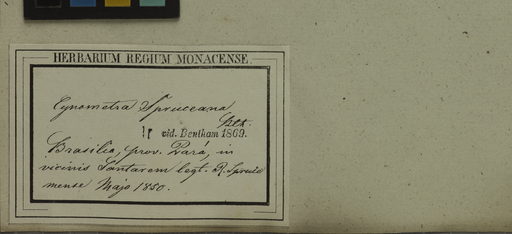 HERBARIUM REGIUM MONACENSE.
Cynometra Spruceana
Bth.
vid. Bentham 1869.
Brasilia, prov. Pará, in
vicinis Santarem legt. R. Spruce
mense Majo 1850.